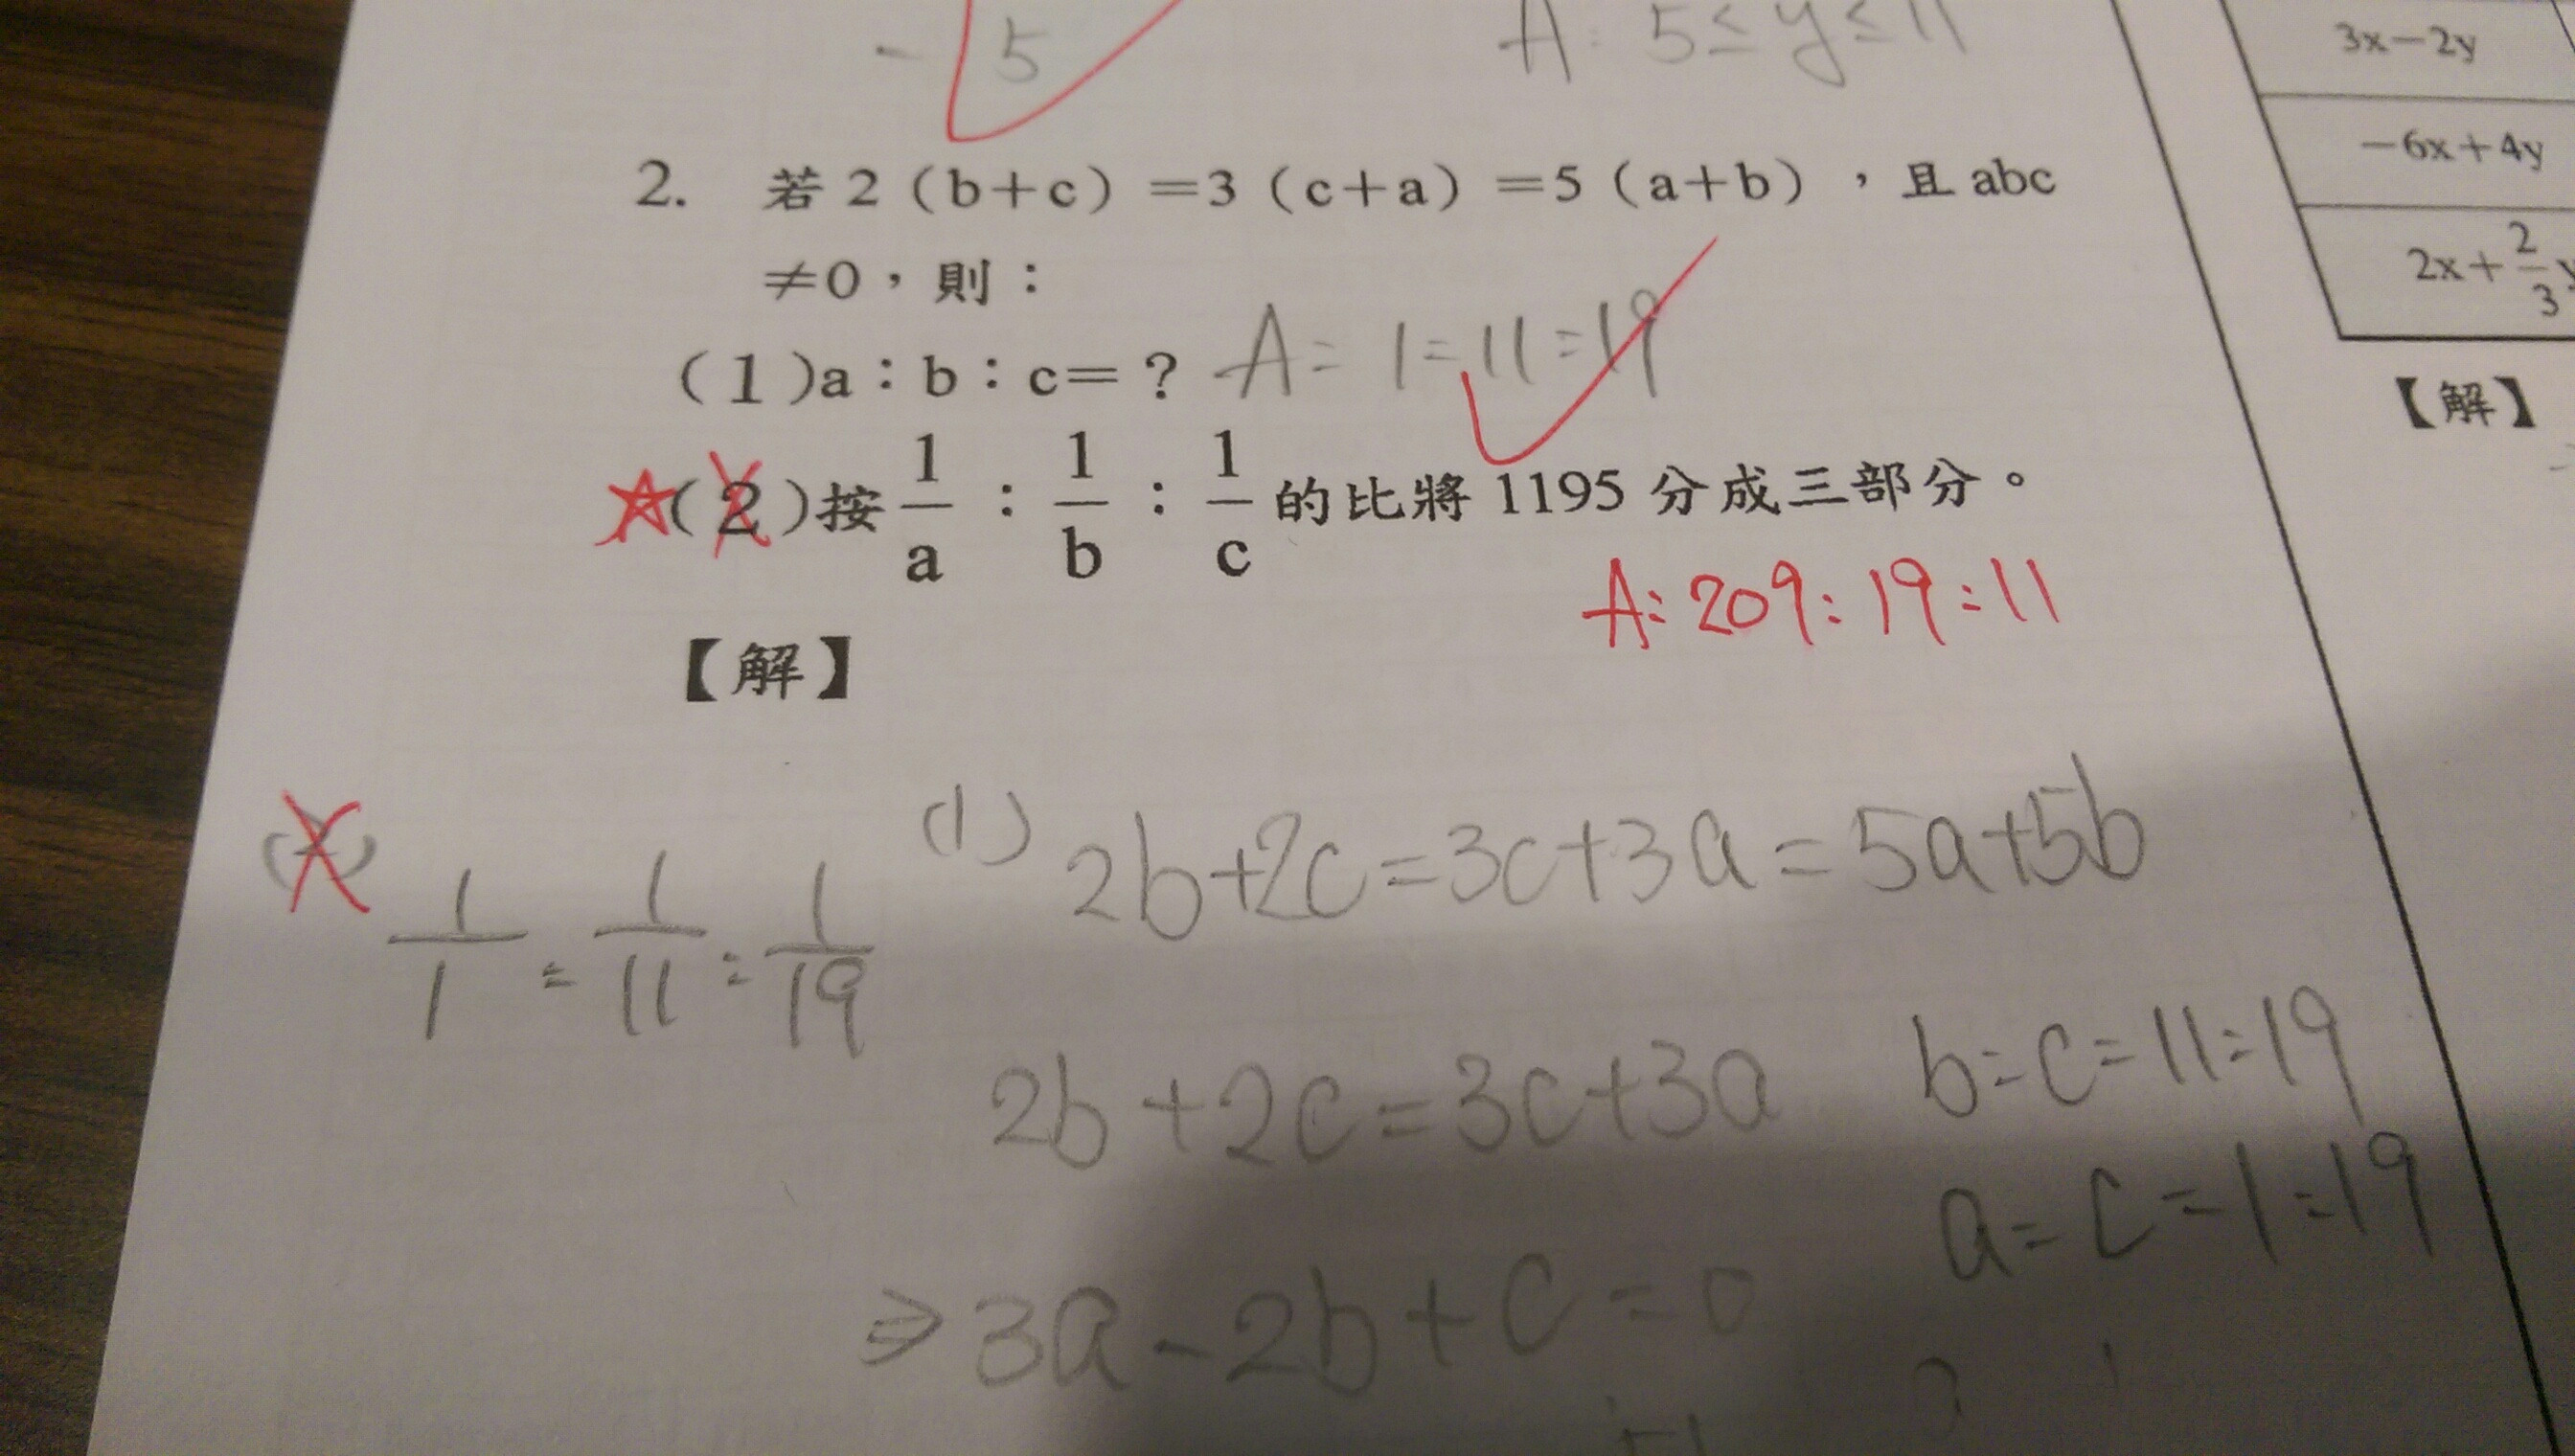 5
A: 5≤y≤11
3x−2y
−6x+4y
2x+2/3
2. 若 2(b+c)=3(c+a)=5(a+b),且 abc
≠0,則:
(1)a:b:c=? A: 1:11:19
☆(2)按 1/a : 1/b : 1/c 的比將 1195 分成三部分。
A: 209:19:11
【解】
【解】
(1) 2b+2c=3c+3a=5a+5b
1/1 : 1/11 : 1/19
2b+2c=3c+3a
b:c=11:19
a:c=1:19
⇒3a-2b+c=0